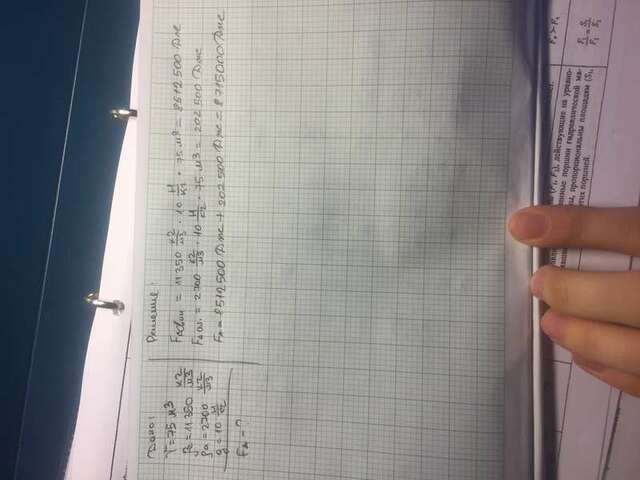 Дано:
V=75 м³
ρс=11350 кг/м³
ρа=2700 кг/м³
g=10 Н/кг
FA - ?
Решение:
FAсвин = 11 350 кг/м³ · 10 Н/кг · 75 м³ = 8512500 Дж
FAал. = 2700 кг/м³ · 10 Н/кг · 75 м³ = 202 500 Дж
FA = 8512500 Дж + 202 500 Дж = 8715000 Дж
(F₁, F₂), действующие на уравно-
поршни гидравлической ма-
пропорциональны площадям (S₁,
этих поршней.
F₁/F₂ = S₁/S₂